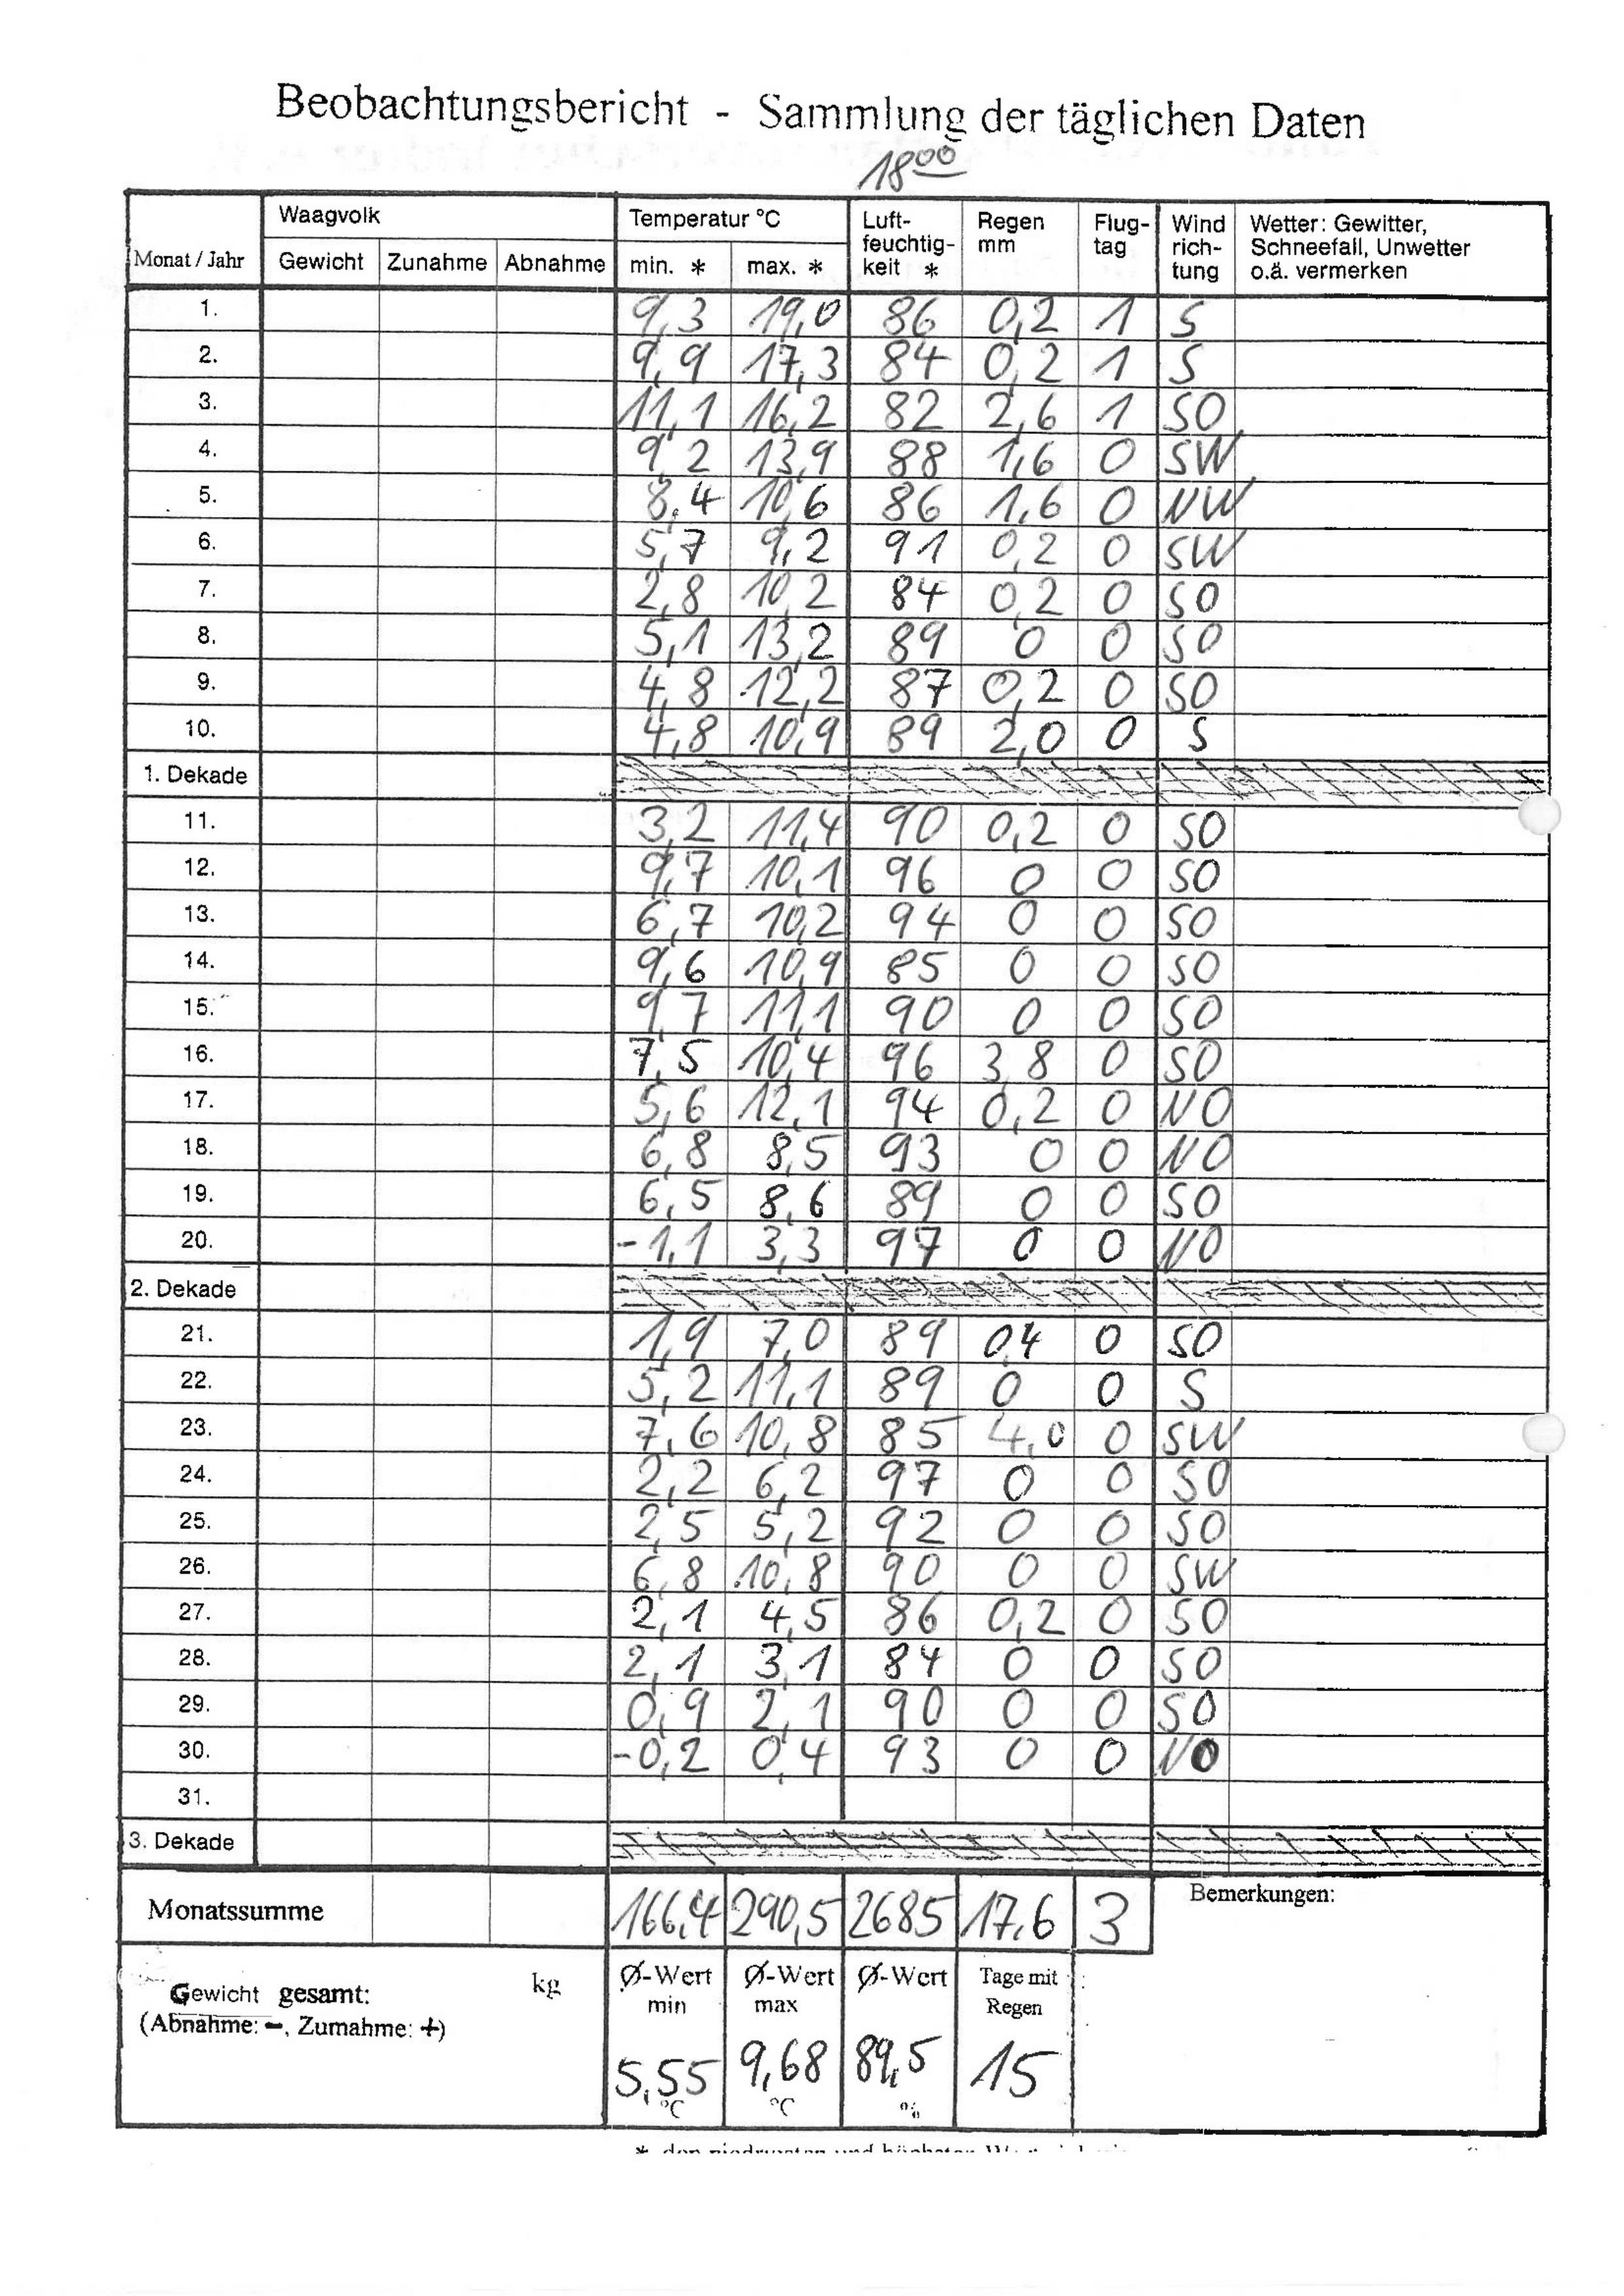 Beobachtungsbericht - Sammlung der täglichen Daten
18 00
Monat / Jahr Waagvolk Gewicht Zunahme Abnahme Temperatur °C min. * max. * Luft-feuchtig-keit * Regen mm Flug-tag Wind rich-tung Wetter: Gewitter, Schneefall, Unwetter o.ä. vermerken
1. 9,3 19,0 86 0,2 1 S
2. 9,9 17,3 84 0,2 1 S
3. 11,1 16,2 82 2,6 1 SO
4. 9,2 13,9 88 1,6 0 SW
5. 8,4 10,6 86 1,6 0 NW
6. 5,7 9,2 91 0,2 0 SW
7. 2,8 10,2 84 0,2 0 SO
8. 5,1 13,2 89 0 0 SO
9. 4,8 12,2 87 0,2 0 SO
10. 4,8 10,9 89 2,0 0 S
1. Dekade
11. 3,2 11,4 90 0,2 0 SO
12. 9,7 10,1 96 0 0 SO
13. 6,7 10,2 94 0 0 SO
14. 9,6 10,9 85 0 0 SO
15. 9,7 11,1 90 0 0 SO
16. 7,5 10,4 96 3,8 0 SO
17. 5,6 12,1 94 0,2 0 NO
18. 6,8 8,5 93 0 0 NO
19. 6,5 8,6 89 0 0 SO
20. -1,1 3,3 97 0 0 NO
2. Dekade
21. 1,9 7,0 89 0,4 0 SO
22. 5,2 11,1 89 0 0 S
23. 7,6 10,8 85 4,0 0 SW
24. 2,2 6,2 97 0 0 SO
25. 2,5 5,2 92 0 0 SO
26. 6,8 10,8 90 0 0 SW
27. 2,1 4,5 86 0,2 0 SO
28. 2,1 3,1 84 0 0 SO
29. 0,9 2,1 90 0 0 SO
30. -0,2 0,4 93 0 0 NO
31.
3. Dekade
Monatssumme 166,4 290,5 2685 17,6 3 Bemerkungen:
Gewicht gesamt: kg Ø-Wert min Ø-Wert max Ø-Wert Tage mit Regen
(Abnahme: -, Zumahme: +)
5,55 °C 9,68 °C 89,5 % 15
* den niedrigsten und höchsten